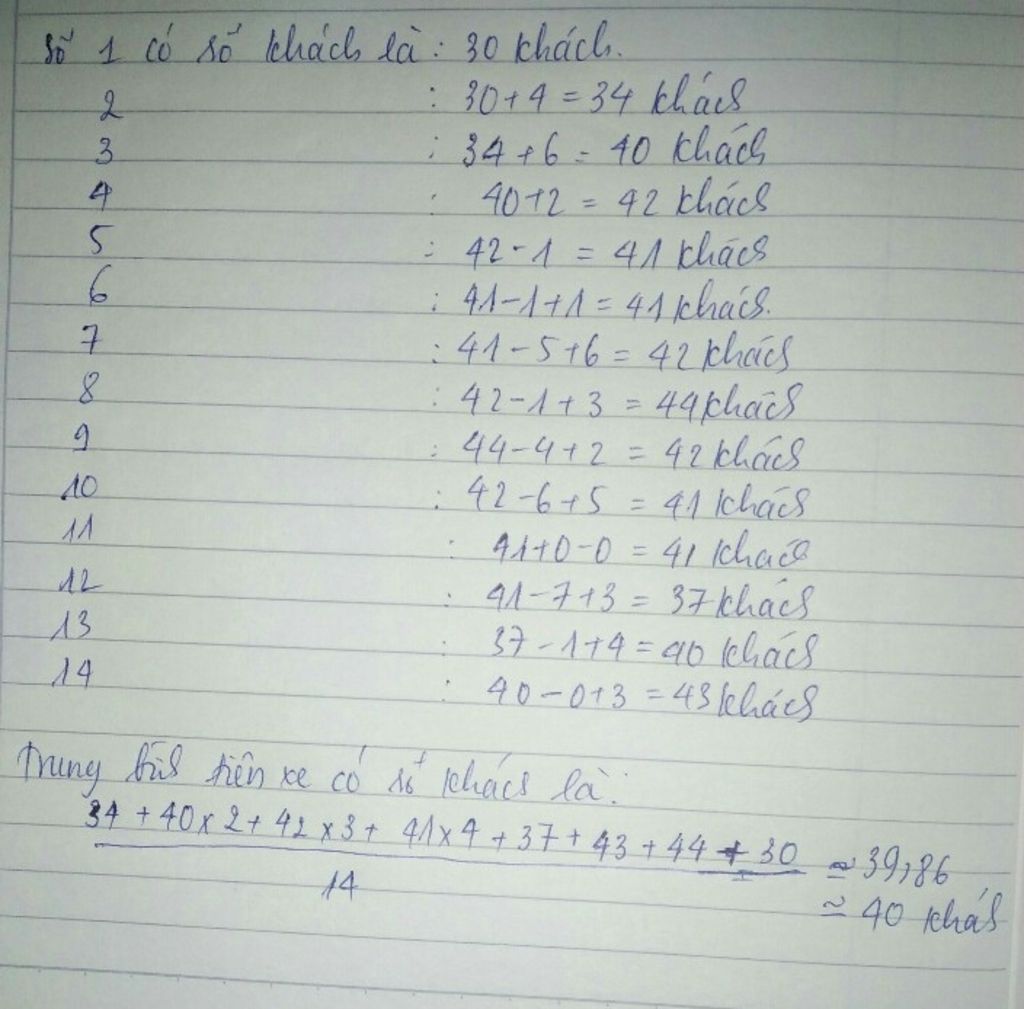 Số 1 có số khách là: 30 khách.
2 : 30+4 = 34 khách
3 : 34+6 = 40 khách
4 : 40+2 = 42 khách
5 : 42-1 = 41 khách
6 : 41-1+1 = 41 khách.
7 : 41-5+6 = 42 khách
8 : 42-1+3 = 44 khách
9 : 44-4+2 = 42 khách
10 : 42-6+5 = 41 khách
11 : 41+0-0 = 41 khách
12 : 41-7+3 = 37 khách
13 : 37-1+4 = 40 khách
14 : 40-0+3 = 43 khách
Trung bình trên xe có số khách là:
34 + 40 x 2 + 42 x 3 + 41 x 4 + 37 + 43 + 44 + 30 ≃ 39,86
14
≃ 40 khách